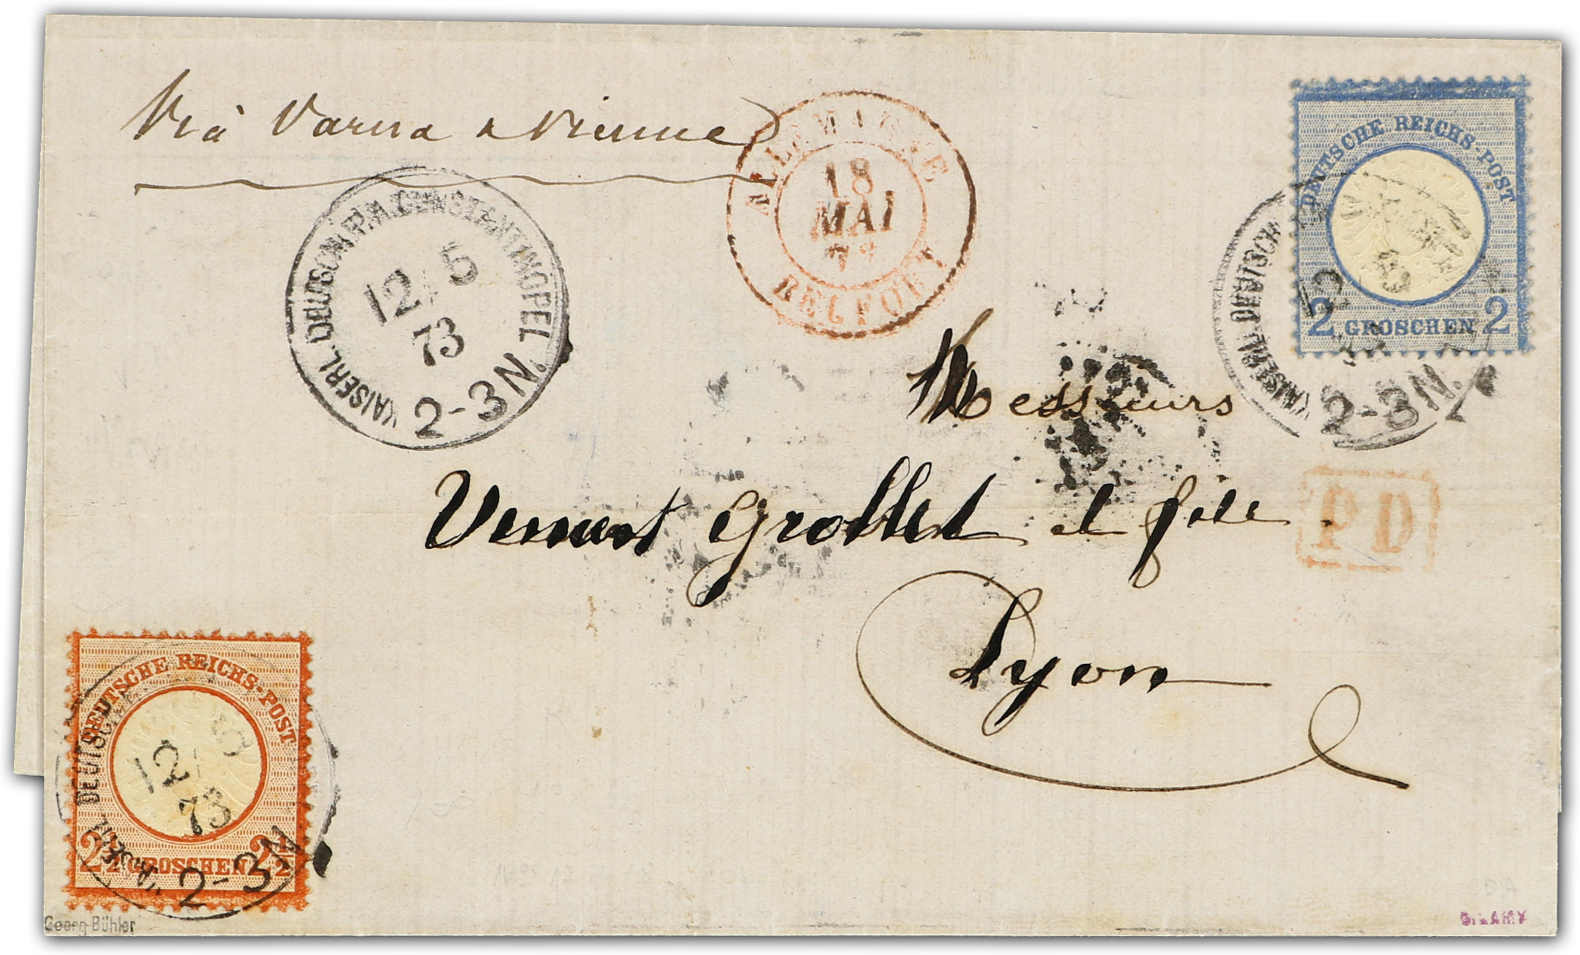 Viâ Varna & Vienne
ALLEMAGNE
18
MAI
73
BELFORT
KAISERL. DEUTSCH. P.A. CONSTANTINOPEL
12/5
73
2-3N
DEUTSCHE REICHS-POST
2 GROSCHEN 2
KAISERL. DEUTSCH
2-3N.
Messieurs
Grollet et fils
PD
Lyon
DEUTSCHE REICHS-POST
2½ GROSCHEN 2½
DEUTSCHE
12/5
73
2-3N
Georg Bühler